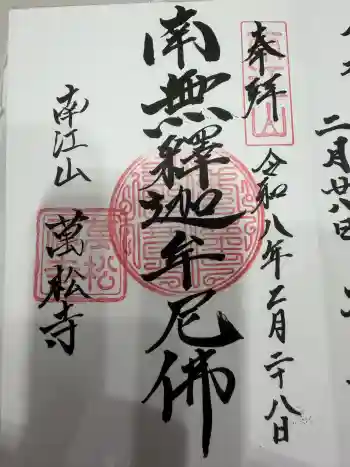 二月廿八日
奉拝
令和八年二月二十八日
南無釋迦牟尼佛
南江山
萬松寺